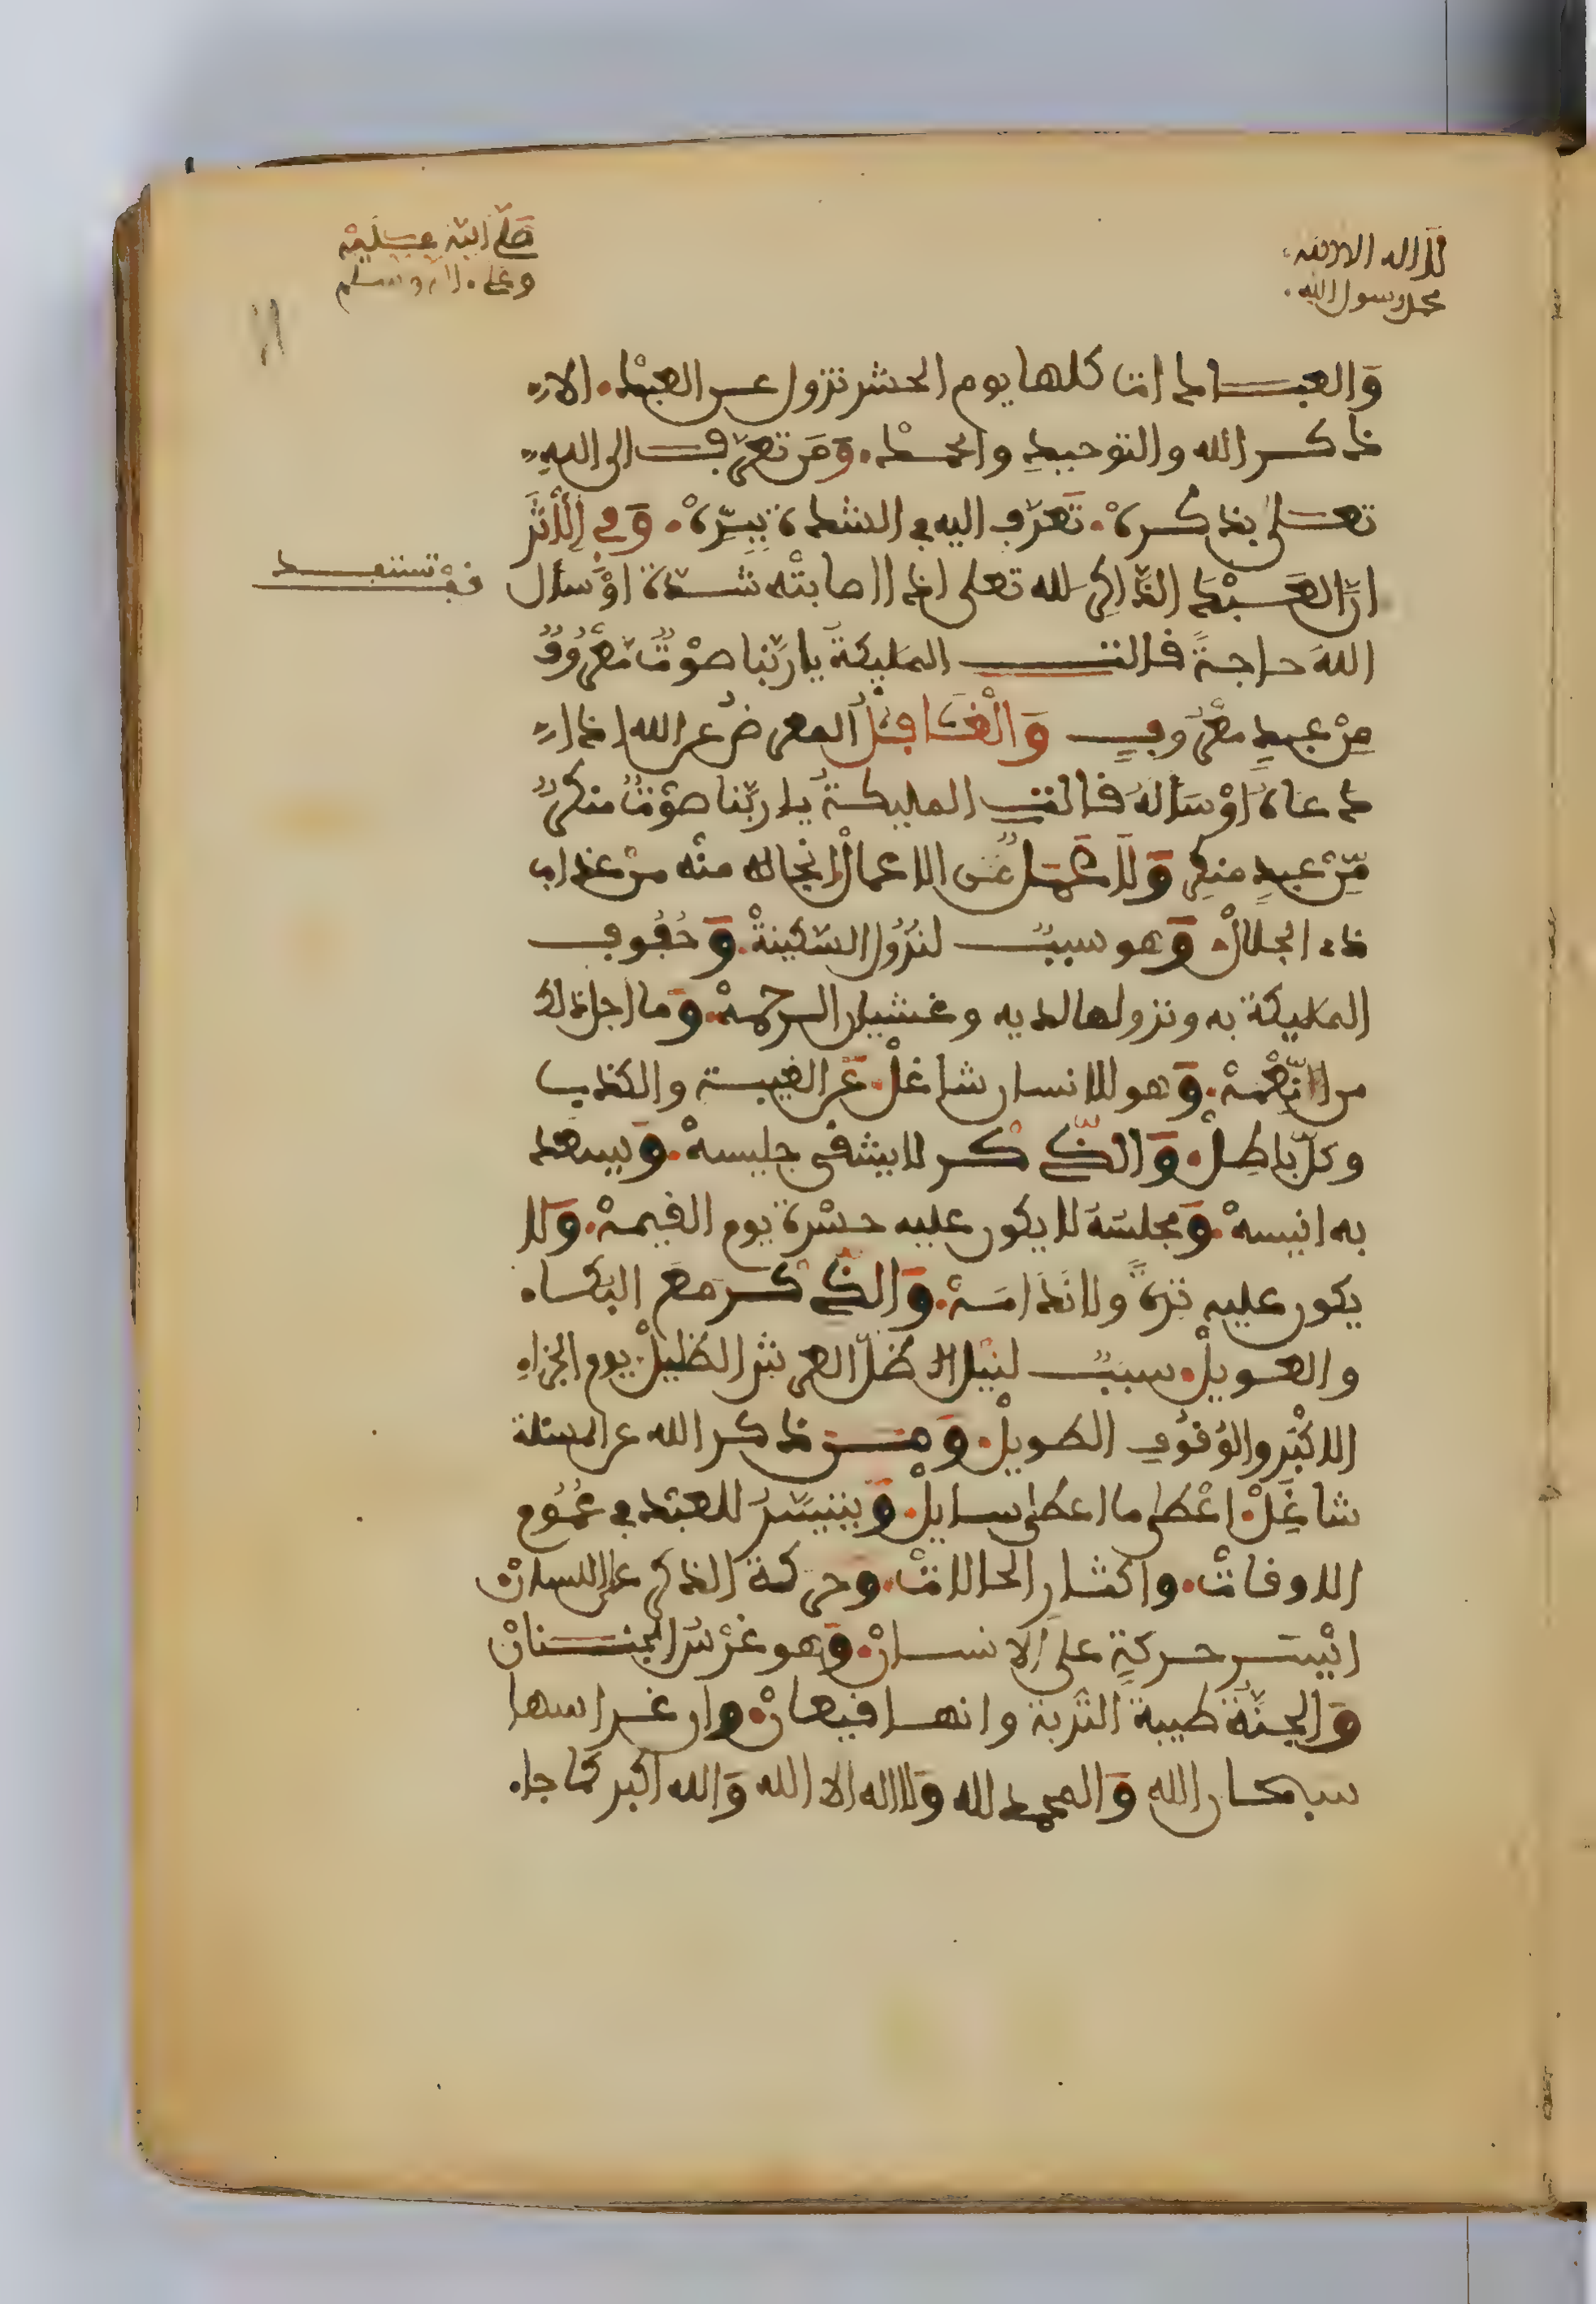 لا اله الا الله
محمد رسول الله
صلى الله عليه
وعلى اله وسلم
والعبادات كلها يوم الحشر تزول عن العبد. الا
ذكر الله والتوحيد والحمد. ومن تعرف الى الله
تعلى بذكره. تعرف اليه في الشدة ببره. وفي الأثر
ان العبد الذاكر لله تعلى اذا اصابته شدة او سأل
الله حاجة قالت المليكة يا ربنا صوت معروف
من عبد معروف والغافل المعرض عن الله اذا
دعاه او سأله قالت المليكة يا ربنا صوت منكر
من عبد منكر ولا عمل من الاعمال انجا له منه من عذاب
ذي الجلال. وهو سبب لنزول السكينة. وحفوف
المليكة به ونزولها لديه وغشيان الرحمة. وما اجل ذلك
من النعمة. وهو للانسان شاغل. عن الغيبة والكذب
وكل باطل. والذكر لا يشقى جليسه. ويسعد
به انيسه. ومجلسه لا يكون عليه حسرة يوم القيمة. ولا
يكون عليه ترة ولا ندامة. والذكر مع البكاء
والعويل. سبب لنيل ظل العرش الظليل. يوم الجزاء
الاكبر والوقوف الطويل. ومن ذكر الله عن المسئلة
شاغل. اعطى ما اعطى سايل. ويتيسر للعبد في عموم
الاوقات. واكثار الحالات. وحركة الذكر على اللسان
ايسر حركة على الانسان. وهو غرس الجنان
والجنة طيبة التربة وانها قيعان. وان غراسها
سبحان الله والحمد لله ولا اله الا الله والله اكبر كما جاء